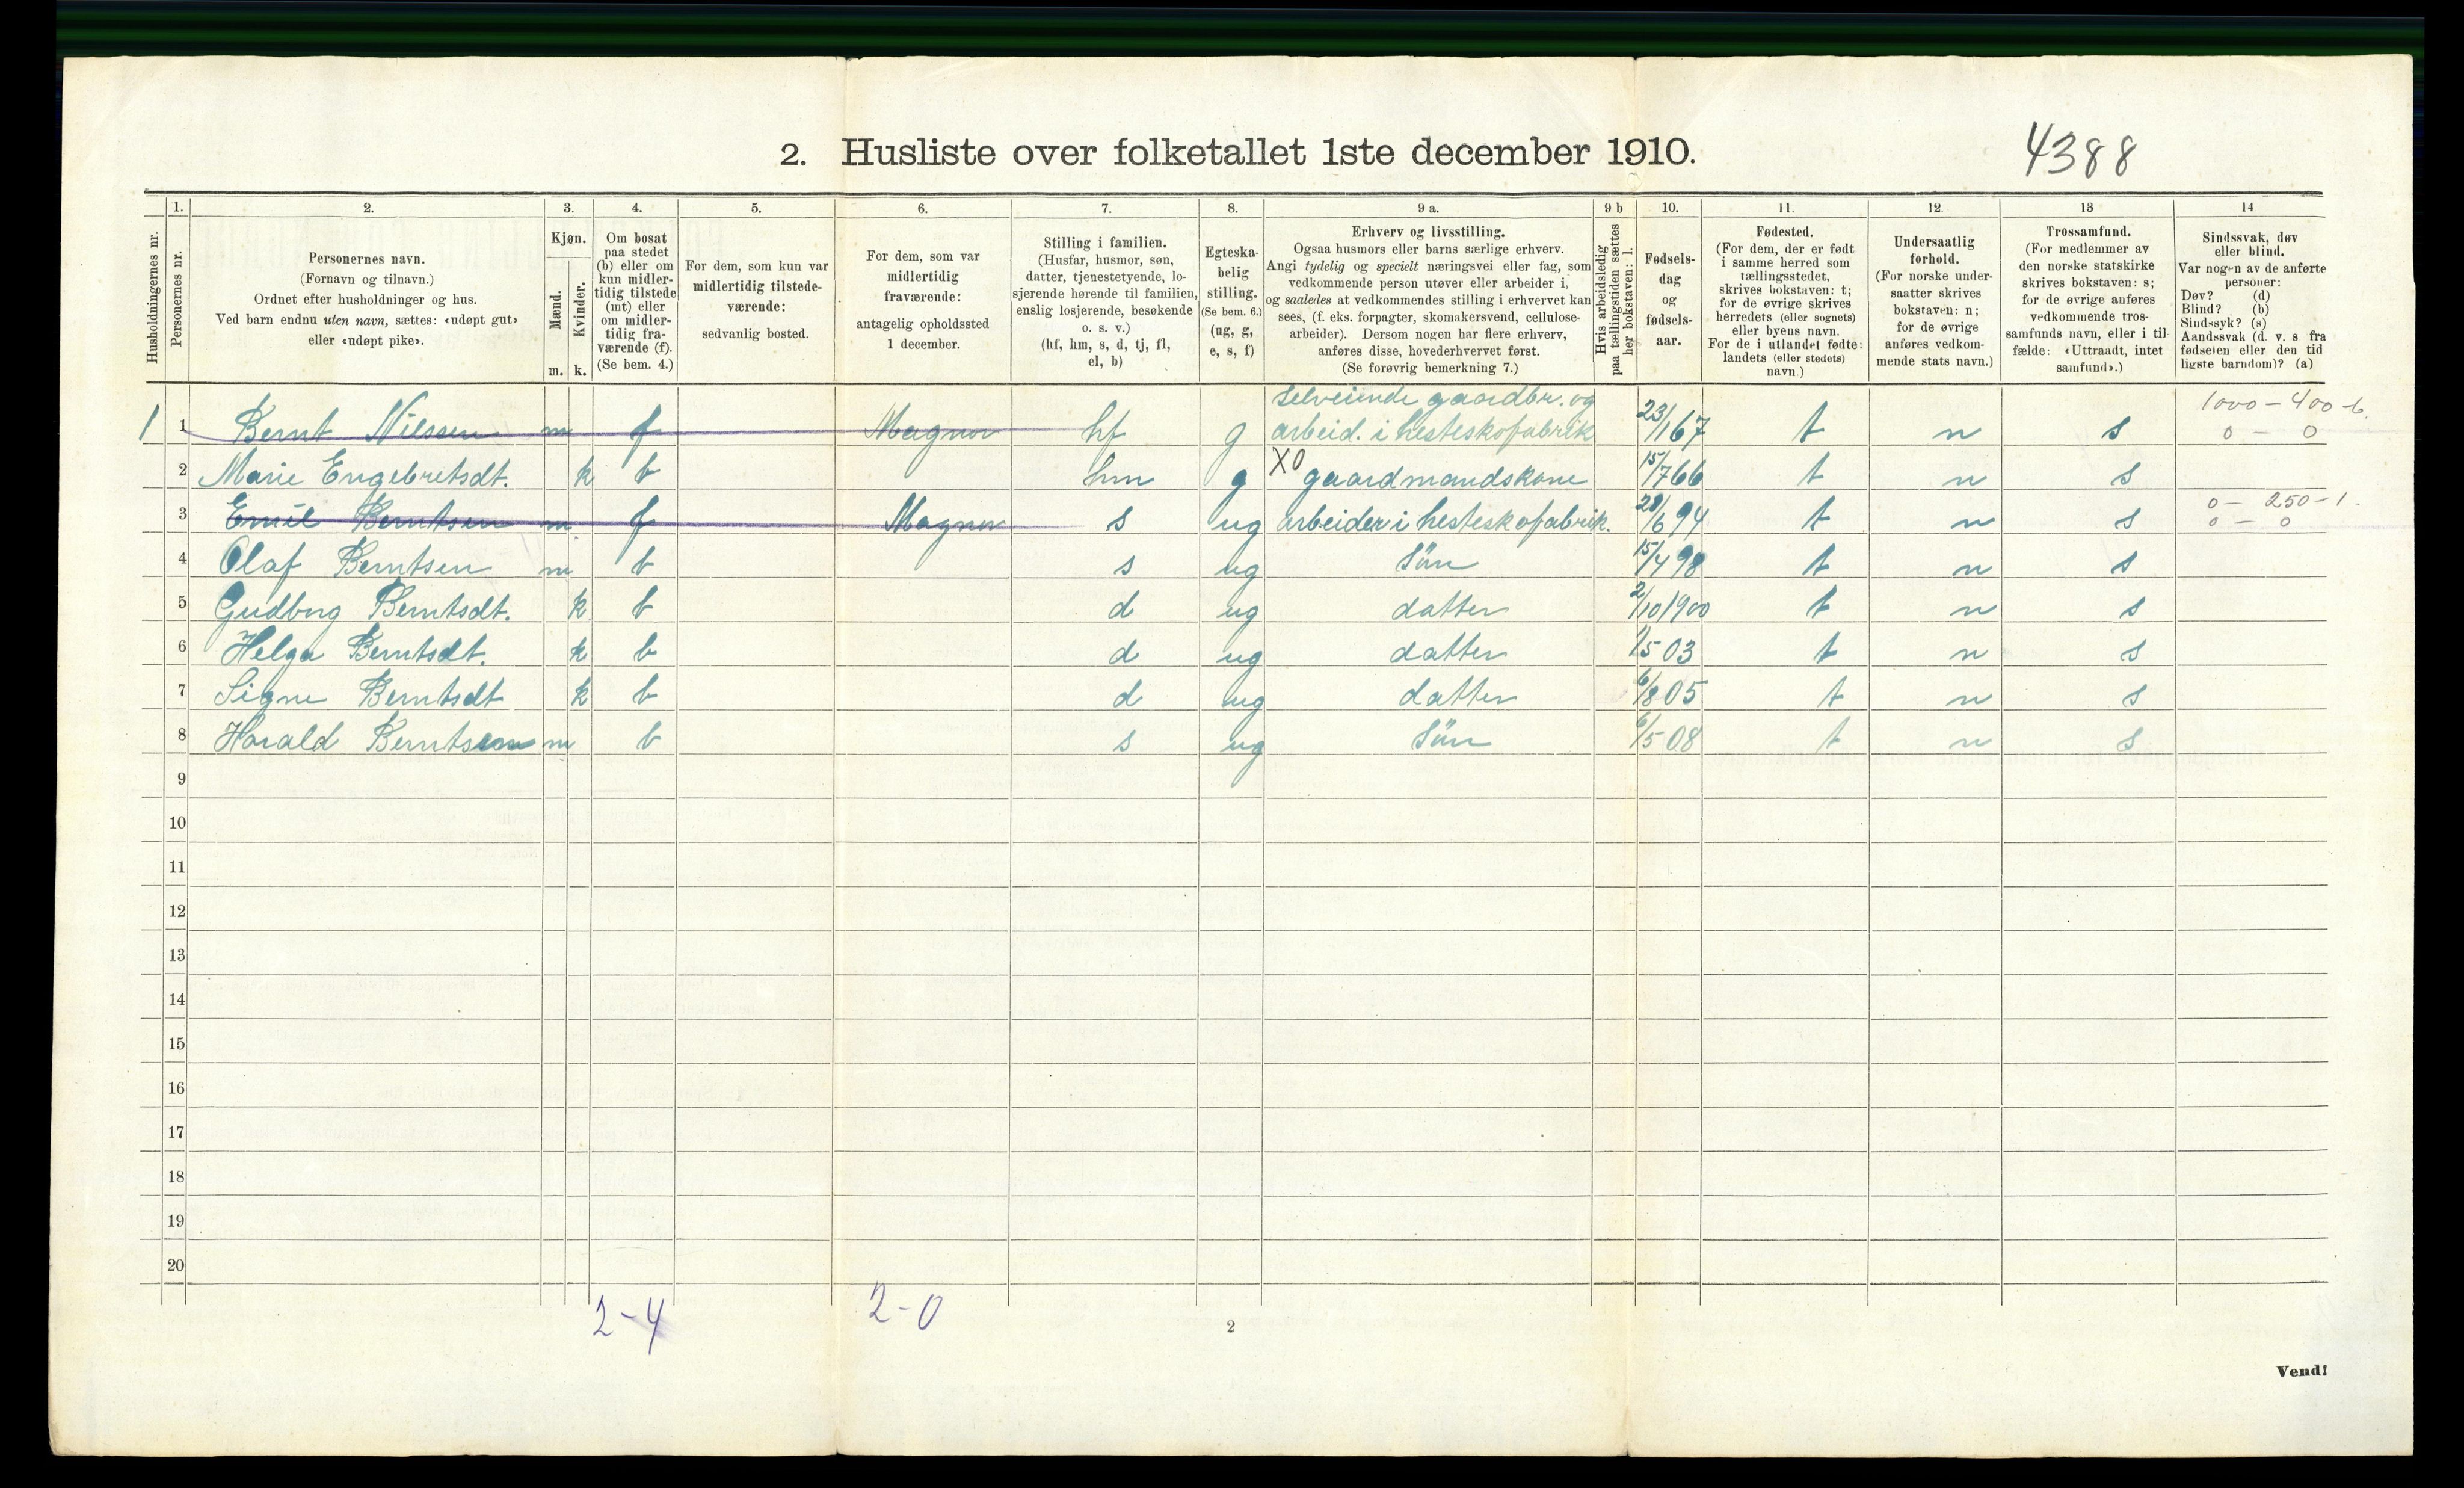 2. Husliste over folketallet 1ste december 1910.
4388
Husholdningernes nr.
1.
Personernes nr.
2.
Personernes navn.
(Fornavn og tilnavn.)
Ordnet efter husholdninger og hus.
Ved barn endnu uten navn, sættes: «udøpt gut»
eller «udøpt pike».
3.
Kjøn.
Mænd.
Kvinder.
m. k.
4.
Om bosat
paa stedet
(b) eller om
kun midler-
tidig tilstede
(mt) eller
om midler-
tidig fra-
værende (f).
(Se bem. 4.)
5.
For dem, som kun var
midlertidig tilstede-
værende:
sedvanlig bosted.
6.
For dem, som var
midlertidig
fraværende:
antagelig opholdssted
1 december.
7.
Stilling i familien.
(Husfar, husmor, søn,
datter, tjenestetyende, lo-
sjerende hørende til familien,
enslig losjerende, besøkende
o. s. v.)
(hf, hm, s, d, tj, fl,
el, b)
8.
Egteska-
belig
stilling.
(Se bem. 6.)
(ug, g,
e, s, f)
9 a.
Erhverv og livsstilling.
Ogsaa husmors eller barns særlige erhverv.
Angi tydelig og specielt næringsvei eller fag, som
vedkommende person utøver eller arbeider i,
og saaledes at vedkommendes stilling i erhvervet kan
sees, (f. eks. forpagter, skomakersvend, cellulose-
arbeider). Dersom nogen har flere erhverv,
anføres disse, hovederhvervet først.
(Se forøvrig bemerkning 7.)
9 b
Hvis arbeidsledig
paa tællingstiden sættes
her bokstaven: l.
10.
Fødsels-
dag
og
fødsels-
aar.
11.
Fødested.
(For dem, der er født
i samme herred som
tællingsstedet,
skrives bokstaven: t;
for de øvrige skrives
herredets (eller sognets)
eller byens navn.
For de i utlandet fødte:
landets (eller stedets)
navn.)
12.
Undersaatlig
forhold.
(For norske under-
saatter skrives
bokstaven: n;
for de øvrige
anføres vedkom-
mende stats navn.)
13
Trossamfund.
(For medlemmer av
den norske statskirke
skrives bokstaven: s;
for de øvrige anføres
vedkommende tros-
samfunds navn, eller i til-
fælde: «Uttraadt, intet
samfund».)
14
Sindssvak, døv
eller blind.
Var nogen av de anførte
personer:
Døv? (d)
Blind? (b)
Sindssyk? (s)
Aandssvak (d. v. s fra
fødselen eller den tid
ligste barndom)? (a)
selveiende gaardbr. og 1000 - 400 - 6.
1 1 Bernt Nilssen m f Magnor hf g arbeid. i hesteskofabrik 23/1 67 t n s 0 - 0
2 Marie Engebretsdt. k b hm g X0 gaardmandskone 15/7 66 t n s
0 - 250 - 1.
3 Emil Berntsen m f Magnor s ug arbeider i hesteskofabrik. 28/6 94 t n s 0 - 0
4 Olaf Berntsen m b s ug Sön 15/4 98 t n s
5 Gudbrg Berntsdt. k b d ug datter 2/10 1900 t n s
6 Helga Berntsdt. k b d ug datter 1/5 03 t n s
7 Signe Berntsdt k b d ug datter 6/8 05 t n s
8 Harald Berntsen m b s ug Sön 6/5 08 t n s
9
10
11
12
13
14
15
16
17
18
19
20
2-4 2-0
2
Vend!